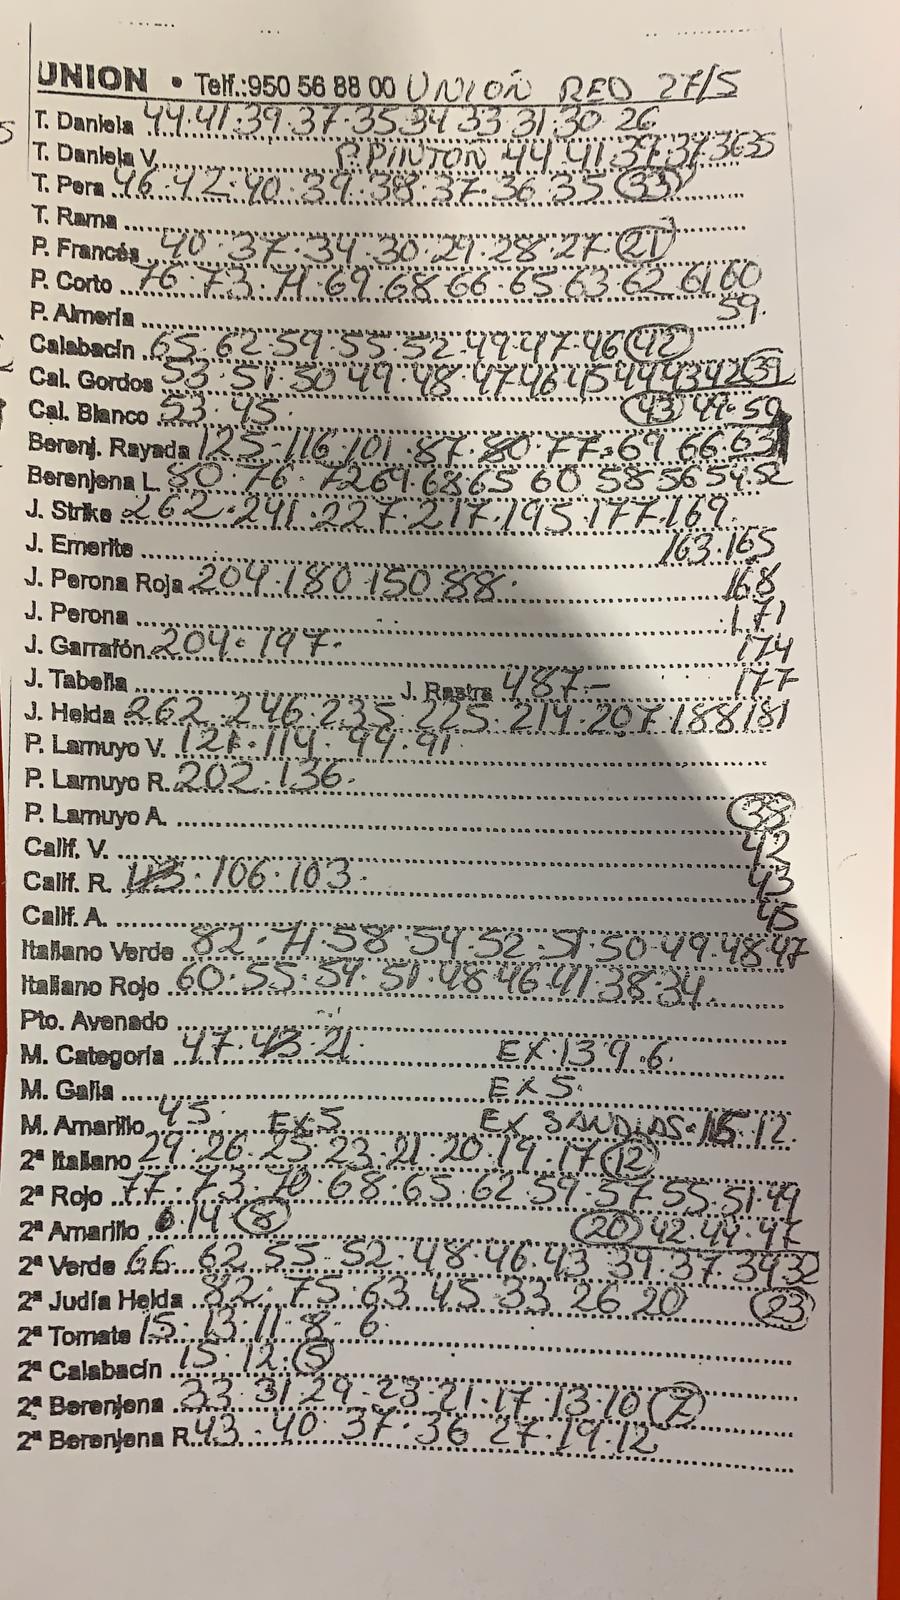 UNION • Telf.:950 56 88 00 UNION RED 27/5
T. Daniela 44.41.39.37.35.34 33.31.30 26
T. Daniela V. P. PINTON 44.41.39.37.36 35
T. Pera 46.42.40.39.38.37.36.35 33
T. Rama
P. Francés 40.37.34.30.29.28.27.21
P. Corto 76.73.71.69.68.66.65 63.62 61 60
P. Almería 59.
Calabacín 65.62.59.55.52.49.47.46 42
Cal. Gordos 53.51.50 49.48.47 46 45 44 43 42 39
Cal. Blanco 53.45. 43 49.50
Berenj. Rayada 125.116.101.87.80.77.69 66 63
Berenjena L. 80.76.72 69.68 65 60 58 56 54 52
J. Strike 262.241.227.217.195.177.169
J. Emerite 163.165
J. Perona Roja 204.180.150 88. 168
J. Perona 171
J. Garrafón 204.197. 174
J. Tabella J. Rastra 487- 177
J. Helda 262.246.235.225.214.207.188 181
P. Lamuyo V. 121.114.99.91
P. Lamuyo R. 202.136.
P. Lamuyo A. 38
Calif. V. 42
Calif. R. 113.106.103. 43
Calif. A. 45
Italiano Verde 82.71.58.54.52.51.50.49.48 47
Italiano Rojo 60.55.54.51.48.46.41.38.34.
Pto. Avenado
M. Categoría 47.43.21. EX.13.9.6.
M. Galia EX 5.
M. Amarillo 45. EX 5 EX SANDIAS.15.12.
2ª Italiano 29.26.25.23.21.20.19.17 12
2ª Rojo 77.73.70.68.65.62.59.57 55.51.49
2ª Amarillo 14.8 20 42.44.47
2ª Verde 66.62.55.52.48.46.43 39.37.34 32
2ª Judía Helda 82.75.63 45 33 26 20 23
2ª Tomate 15.13.11.8.6.
2ª Calabacín 15.12.5
2ª Berenjena 33.31.29.23.21.17.13.10 7
2ª Berenjena R. 43.40.37.36 27.19.12